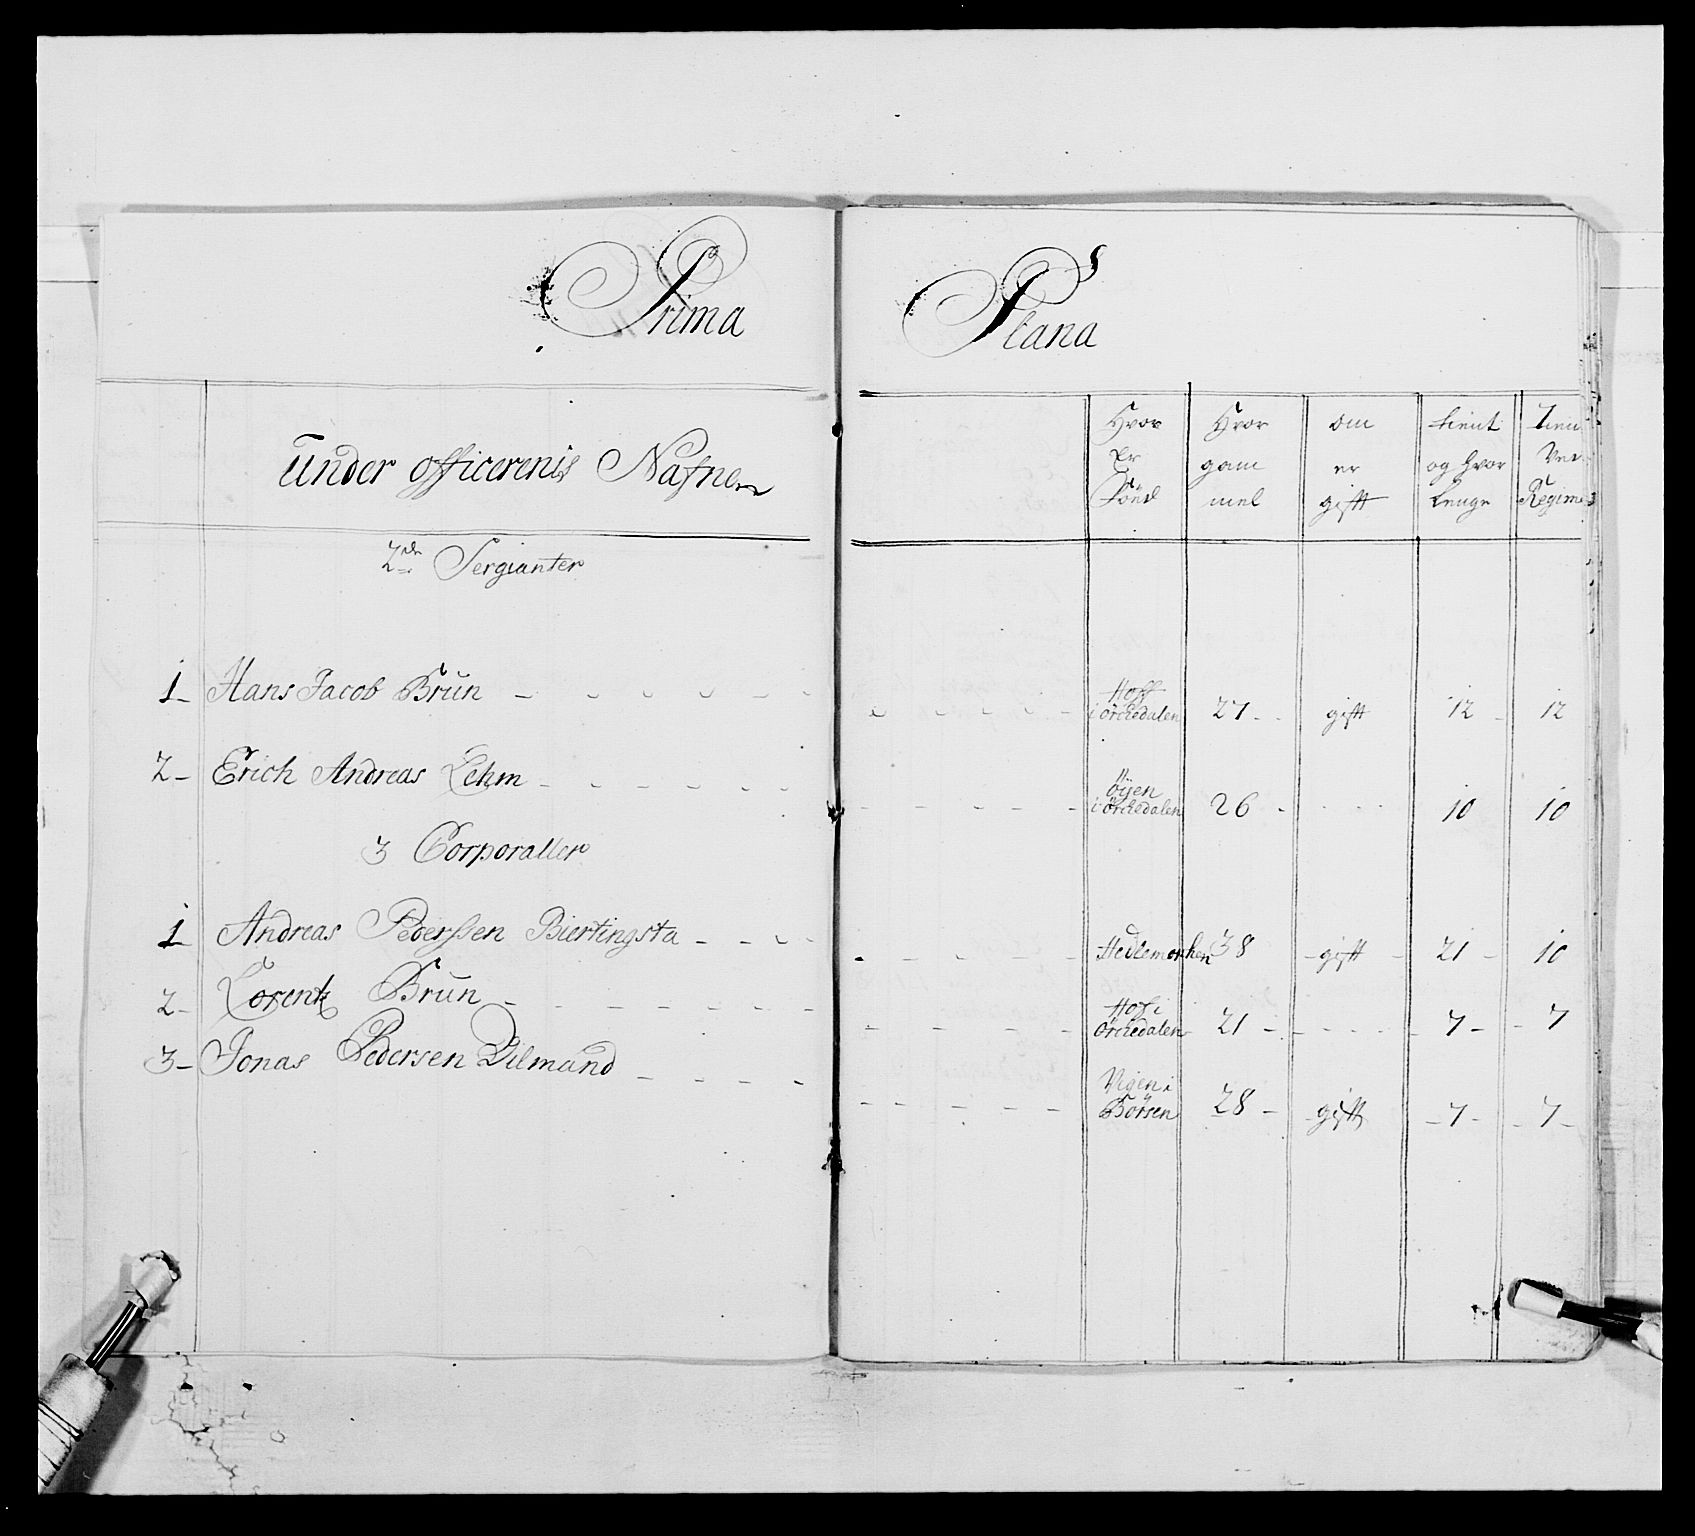 Prima Plana
Under officerenis Nafne
Hvor Er Födt
Hvor gam mel
om er gift
tient og hvor Lenge
Tien Ved Regime
2de Sergianter
1 - Hans Jacob Brun - - - - - - Hoff i Örckedalen 27 - - gift 12 - 12
2 - Erich Andreas Lehm - - - - - - Öÿen i Örckedalen 26 - - - - 10 10
3 Corporaller
1 Andreas Pederssen Biertingsta - - - - Hedemarken 38 - gift - 21 - 10
2 - Lorentz Brun - - - - - - Hof i Örckedalen 21 - - - - - 7 - - 7
3 - Jonas Pedersen Dilmand - - - - Vigen i Börsen 28 - - gift - 7 - - 7 -